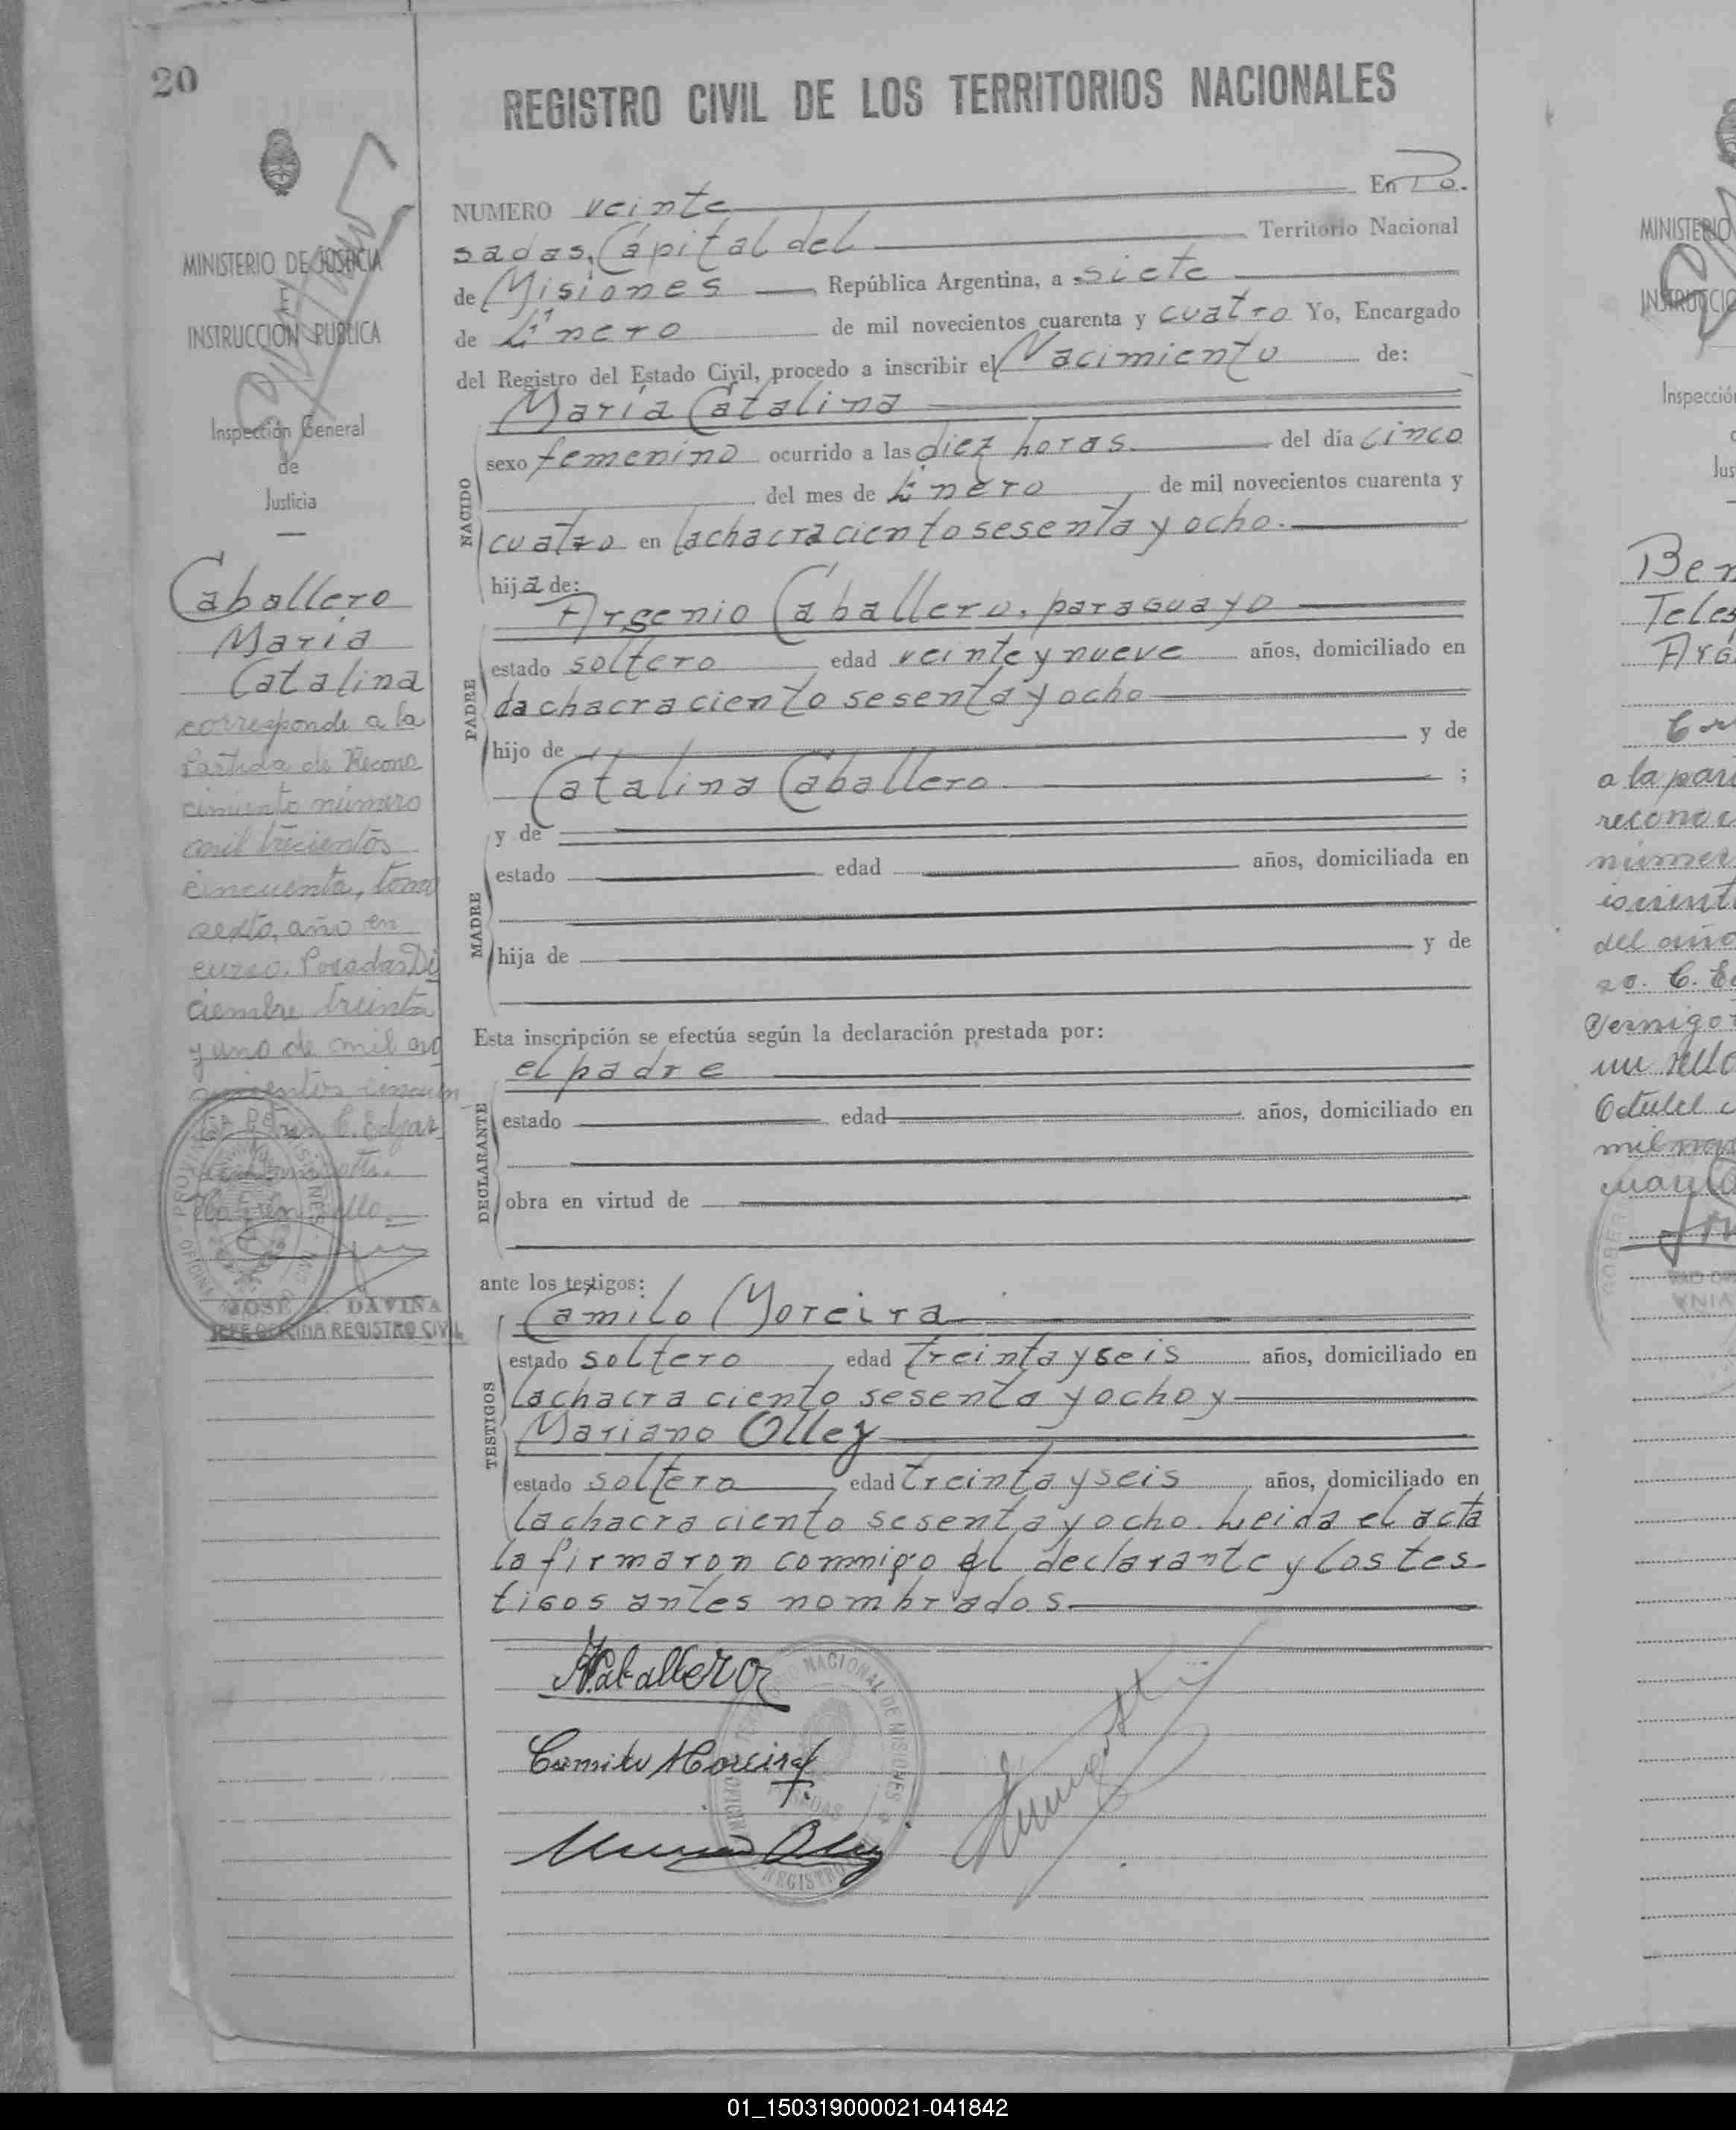 20
REGISTRO CIVIL DE LOS TERRITORIOS NACIONALES
MINISTERIO DE JUSTICIA
E
INSTRUCCIÓN PUBLICA
Inspección General
de
Justicia
Caballero
María
Catalina
corresponde a la
Partida de Recono
cimiento número
mil trecientos
cincuenta, tomo
sexto, año en
curso. Posadas Di
ciembre treinta
y uno de mil no
C. Edgar
JOSE A. DAVIÑA
JEFE OFICINA REGISTRO CIVIL
NUMERO veinte En Po.
sadas, Capital del Territorio Nacional
de Misiones República Argentina, a siete
de Enero de mil novecientos cuarenta y cuatro Yo, Encargado
del Registro del Estado Civil, procedo a inscribir el Nacimiento de:
María Catalina
sexo femenino ocurrido a las diez horas. del día cinco
NACIDO
del mes de Enero de mil novecientos cuarenta y
cuatro en la chacra ciento sesenta y ocho.
hija de:
Arsenio Caballero, paraguayo
estado soltero edad veinte y nueve años, domiciliado en
PADRE
la chacra ciento sesenta y ocho
hijo de y de
Catalina Caballero. ;
y de
estado edad años, domiciliada en
MADRE
hija de y de
Esta inscripción se efectúa según la declaración prestada por:
el padre
estado edad años, domiciliado en
DECLARANTE
obra en virtud de
ante los testigos:
Camilo Moreira
estado soltero edad treinta y seis años, domiciliado en
la chacra ciento sesenta y ocho y
TESTIGOS
Mariano Olley
estado soltero edad treinta y seis años, domiciliado en
la chacra ciento sesenta y ocho. Leida el acta
la firmaron conmigo el declarante y los tes-
tigos antes nombrados.
A Caballero
Camilo Moreira
NACIONAL DE MISIONES
OFICINA
REGISTRO
MINISTERIO
Ben
Teles
a la par
recono
númer
del año
01_150319000021-041842